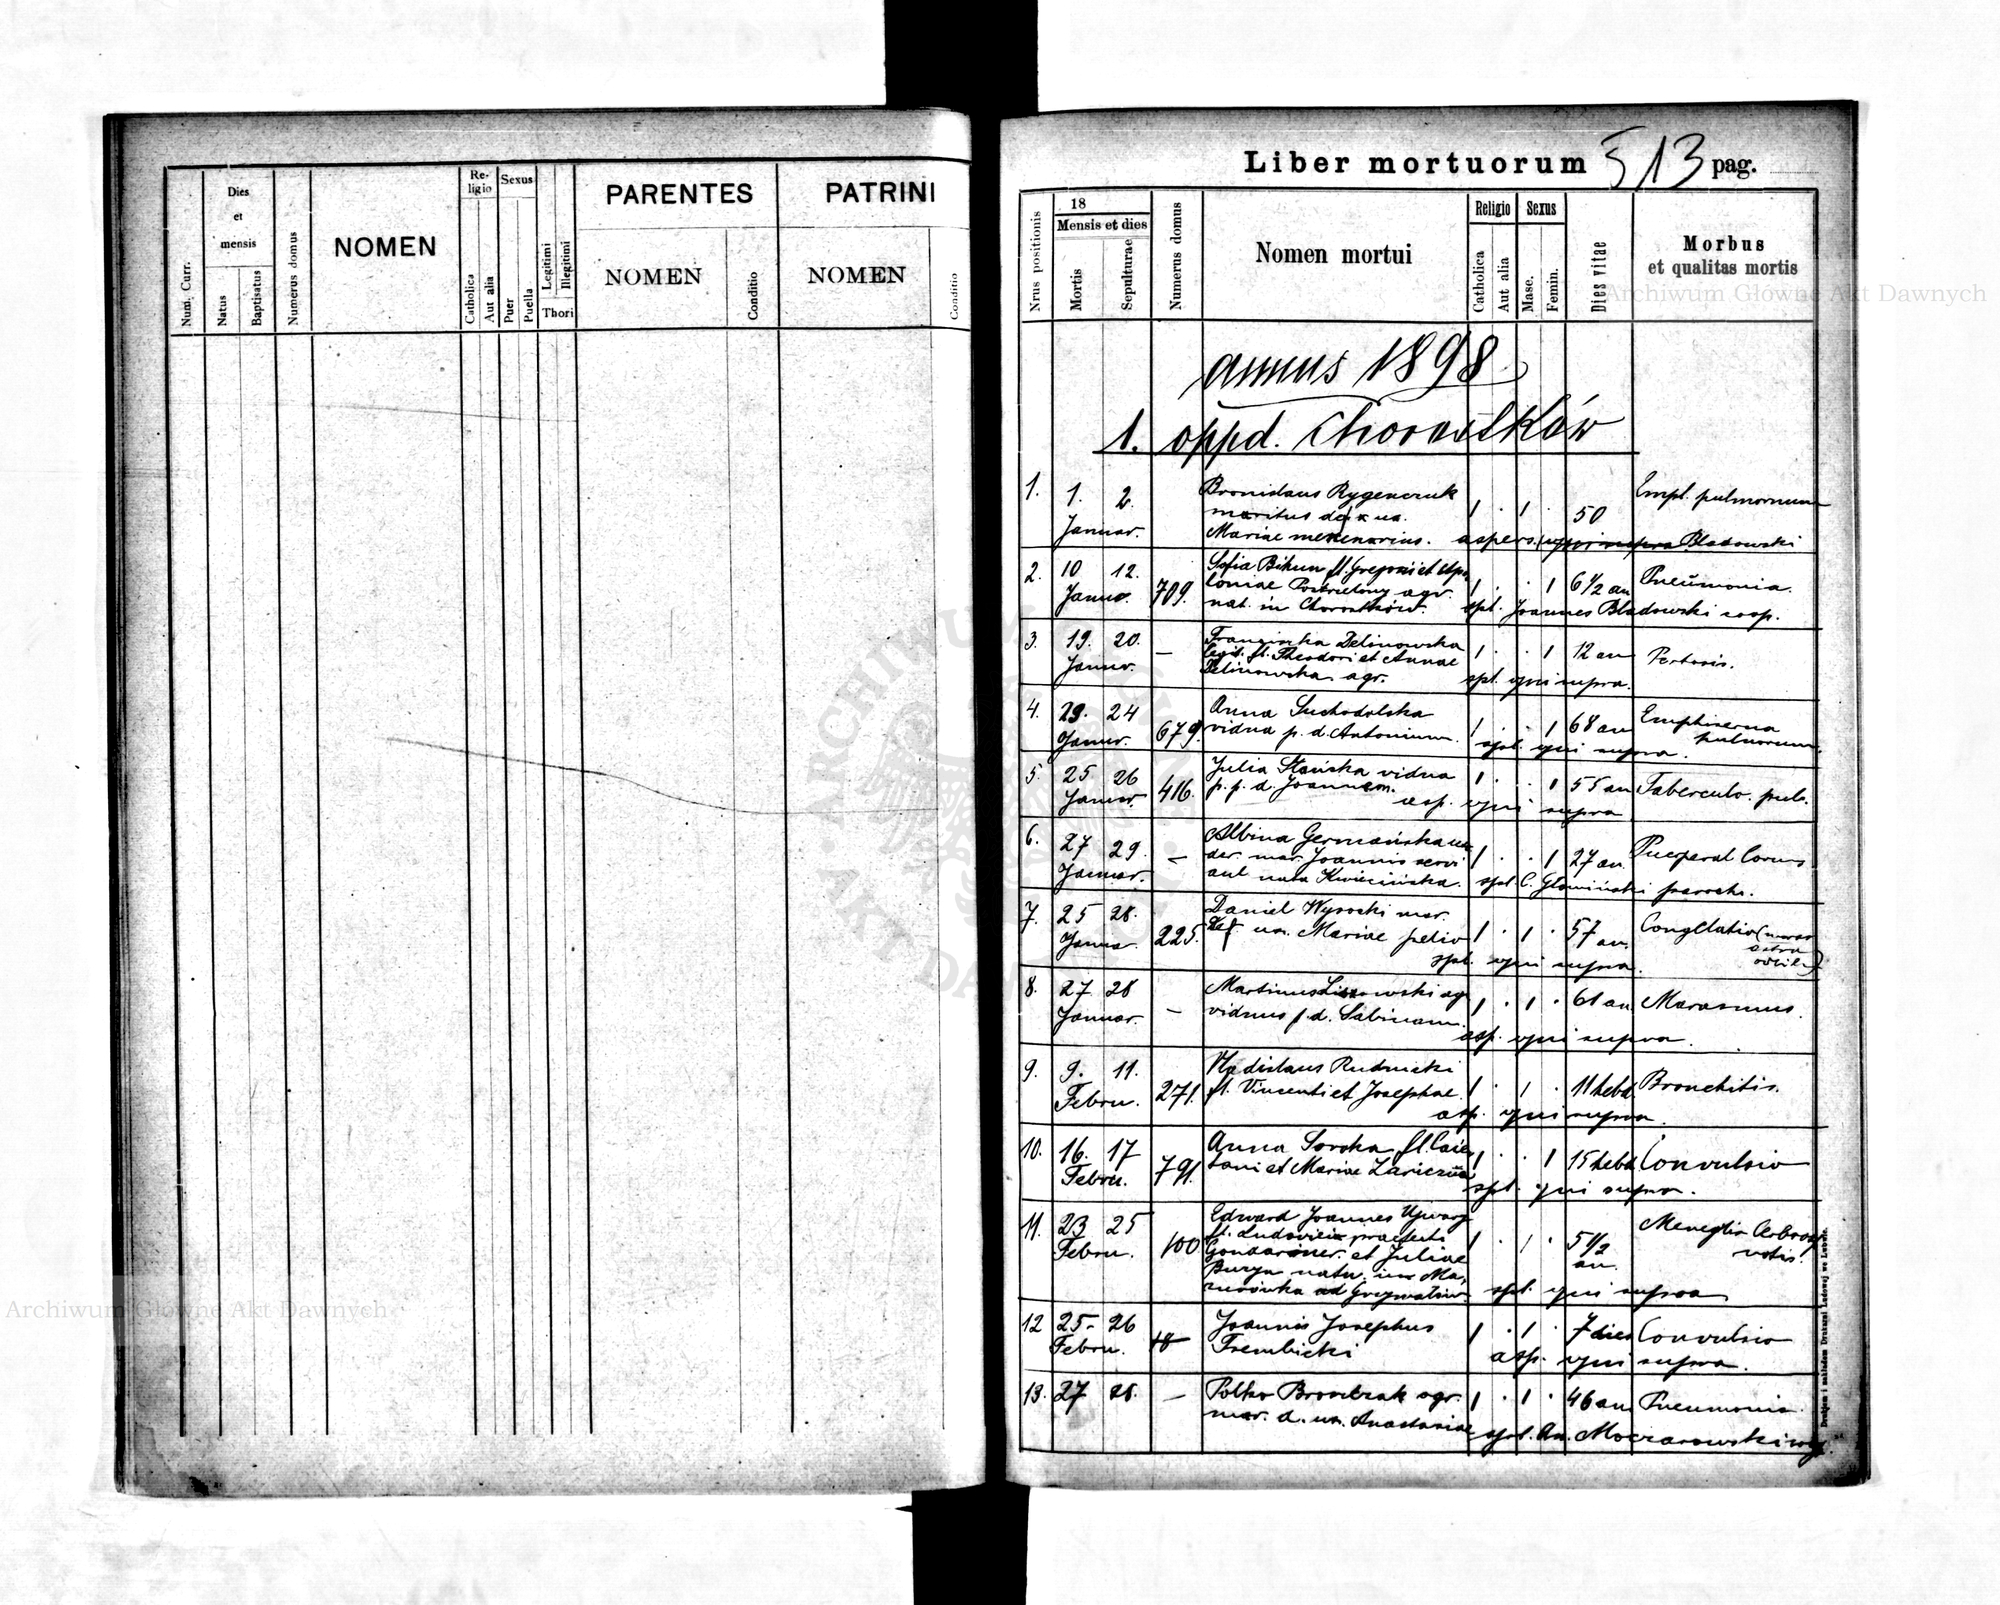 Num. Curr.
Dies
et
mensis
Natus
Baptisatus
Numerus domus
NOMEN
Re-
ligio
Catholica
Aut alia
Sexus
Puer
Puella
Legitimi
Illegitimi
Thori
PARENTES
NOMEN
Conditio
PATRINI
NOMEN
Conditio
Liber mortuorum 513 pag.
Nrus positionis
18
Mensis et dies
Mortis
Sepulturae
Numerus domus
Nomen mortui
Religio
Catholica
Aut alia
Sexus
Masc.
Femin.
Dies vitae
Morbus
et qualitas mortis
annus 1898
1. oppd. Chorostków
1. 1. 2. Bronislaus 1 . 1 . 50 Empl. pulmornum
maritus
Januar. Mariae aspers. Bladowski
2. 10 12. Sofia Bihun fl. Gregorii et Apo
Januar. 709. loniae agr. 1 . . 1 6 1/2 an Pneumonia.
nat. in Chorostków. spt. Joannes Bladowski coop.
3. 19. 20. Franciszka Delinowska
Januar. — legit. fl. Theodori et Annae 1 . . 1 12 an
Delinowska agr. spt. ypsi supra.
4. 23. 24 Anna Suchodolska
Januar. 679. vidua p. d. Antonium. 1 . . 1 68 an Emphisema pulmorum.
spt. ypsi supra.
5. 25 26 Julia Stańska vidua
Januar. 416. p. p. d. Joannem. 1 . . 1 55 an Tuberculo. pul.
asp. ypsi supra
6. 27 29. Albina Germańska
Januar. — mar. Joannis servi 1 . . 1 27 an. Puerperal
nata Kwiecińska. spt. C. Głowiński paroch.
7. 25 28. Daniel Wysocki mar.
Januar. 225. ux. Mariae 1 . 1 . 57 an. Congelatio
spt. ypsi supra.
8. 27 28 Martinus agr
Januar. — viduus p. d. Sabinam. 1 . 1 . 61 an. Marasmus.
asp. ypsi supra.
9. 9. 11. Vladislaus Rudnicki
Febru. 271. fl. Vincenti et Josephae. 1 . 1 . 11 hebd. Bronchitis.
asp. ypsi supra.
10. 16. 17 Anna Soroka fl. Caie
Febru. 791. tani et Mariae 1 . . 1 15 hebd Convulsio
spt. ypsi supra.
11. 23 25 Edward Joannes
Febru. 100 fl. Ludovici praefecti 1 . 1 . 5 1/2 an.
et Juliae
Buzyn
ad spt. ypsi supra
12 25- 26 Joannis Josephus
Febru. 18 Trembicki 1 . 1 . 7 dies Convulsio
asp. ypsi supra.
13. 27 28. — agr. 1 . 1 . 46 an Pneumonia.
mar. d. ux. Anastasiae spt. An. Moczarowski
Drukiem i nakładem Drukarni Ludowej we Lwowie.
Archiwum Główne Akt Dawnych
Archiwum Główne Akt Dawnych
ARCHIWUM GŁÓWNE AKT DAWNYCH